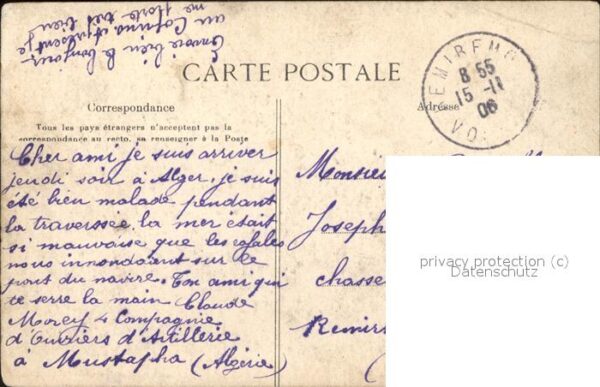 Envoie bien le bonjour
au et
me porte très bien
CARTE POSTALE
REMIREMONT
8 55
15 -11
06
VOSGES
Correspondance
Adresse
Tous les pays étrangers n'acceptent pas la
correspondance au recto, se renseigner à la Poste
Cher ami je suis arriver
jeudi soir à Alger, je suis
été bien malade pendant
la traverssée, la mer était
si mauvaise que les
nous innondaient sur le
pont du navire. Ton ami qui
te serre la main Claude
Morey 4 Compagnie
d'Ouvriers d'Artillerie
à Mustapha (Algérie)
Monsieu
Joseph
chasse
Remir
privacy protection (c)
Datenschutz